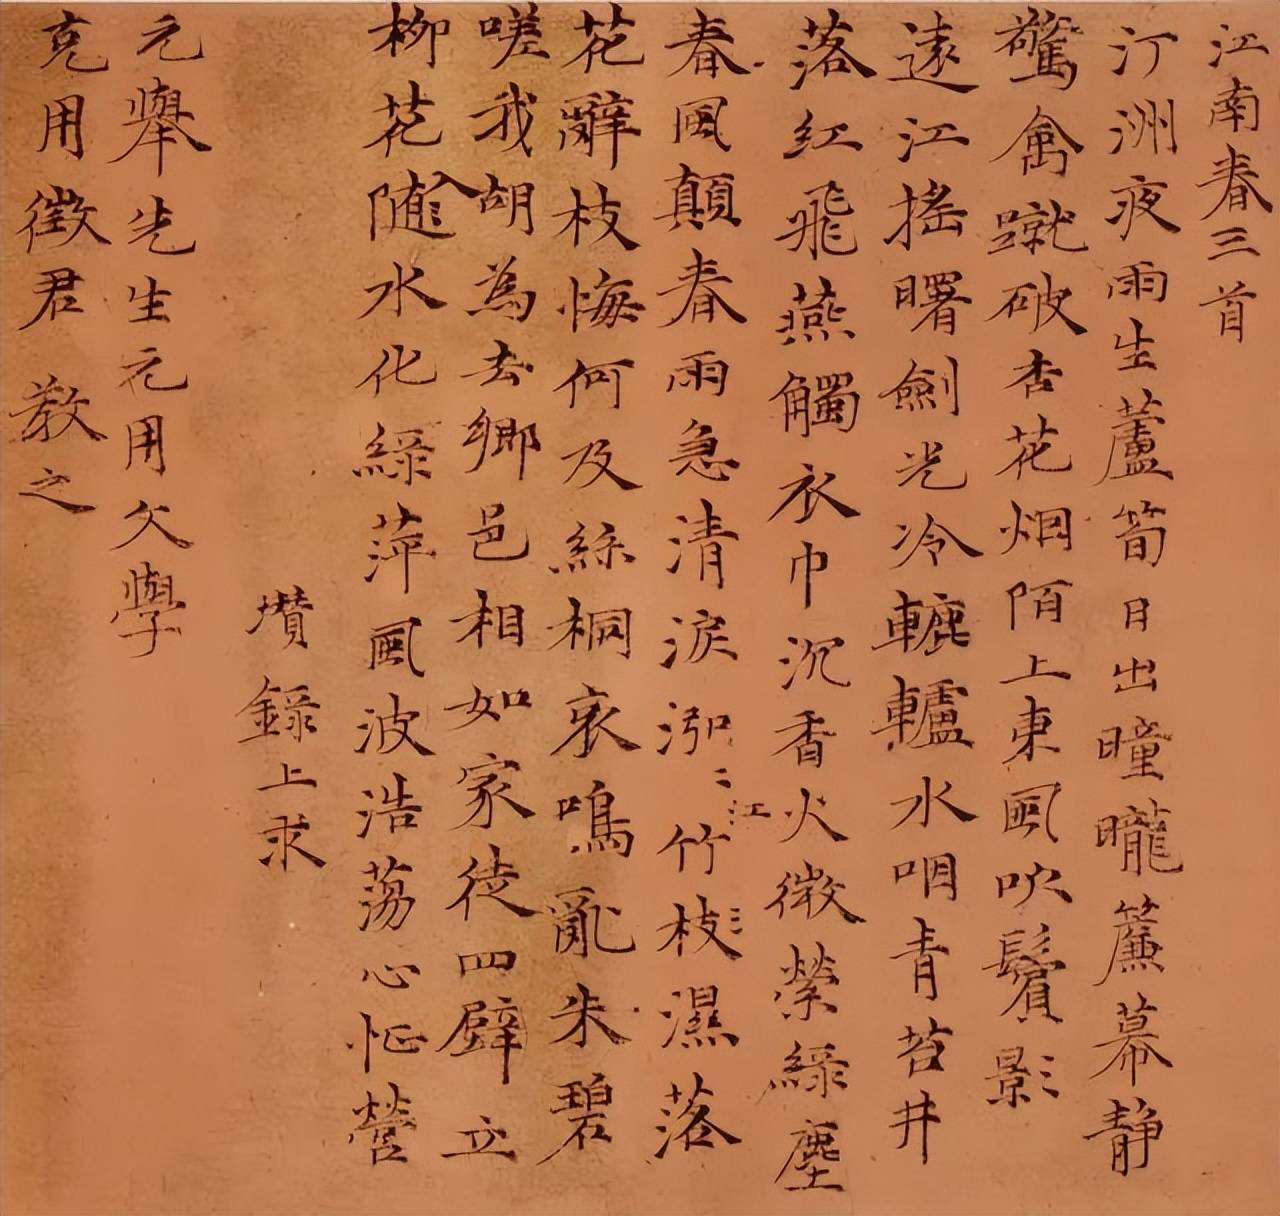 江南春三首
汀洲夜雨生蘆筍日出曈曨簾幕静
驚禽蹴破杏花烟陌上東風吹鬢影
遠江摇曙劍光冷轆轤水咽青苔井
落紅飛燕觸衣巾沉香火微縈綠塵
春風顛春雨急清淚泓〻江竹枝〻濕落
花辭枝悔何及絲桐哀鳴亂朱碧
嗟我胡為去鄉邑相如家徒四壁立
柳花随水化綠萍風波浩蕩心怔營
瓚錄上求
元舉先生元用文學
克用徵君 教之